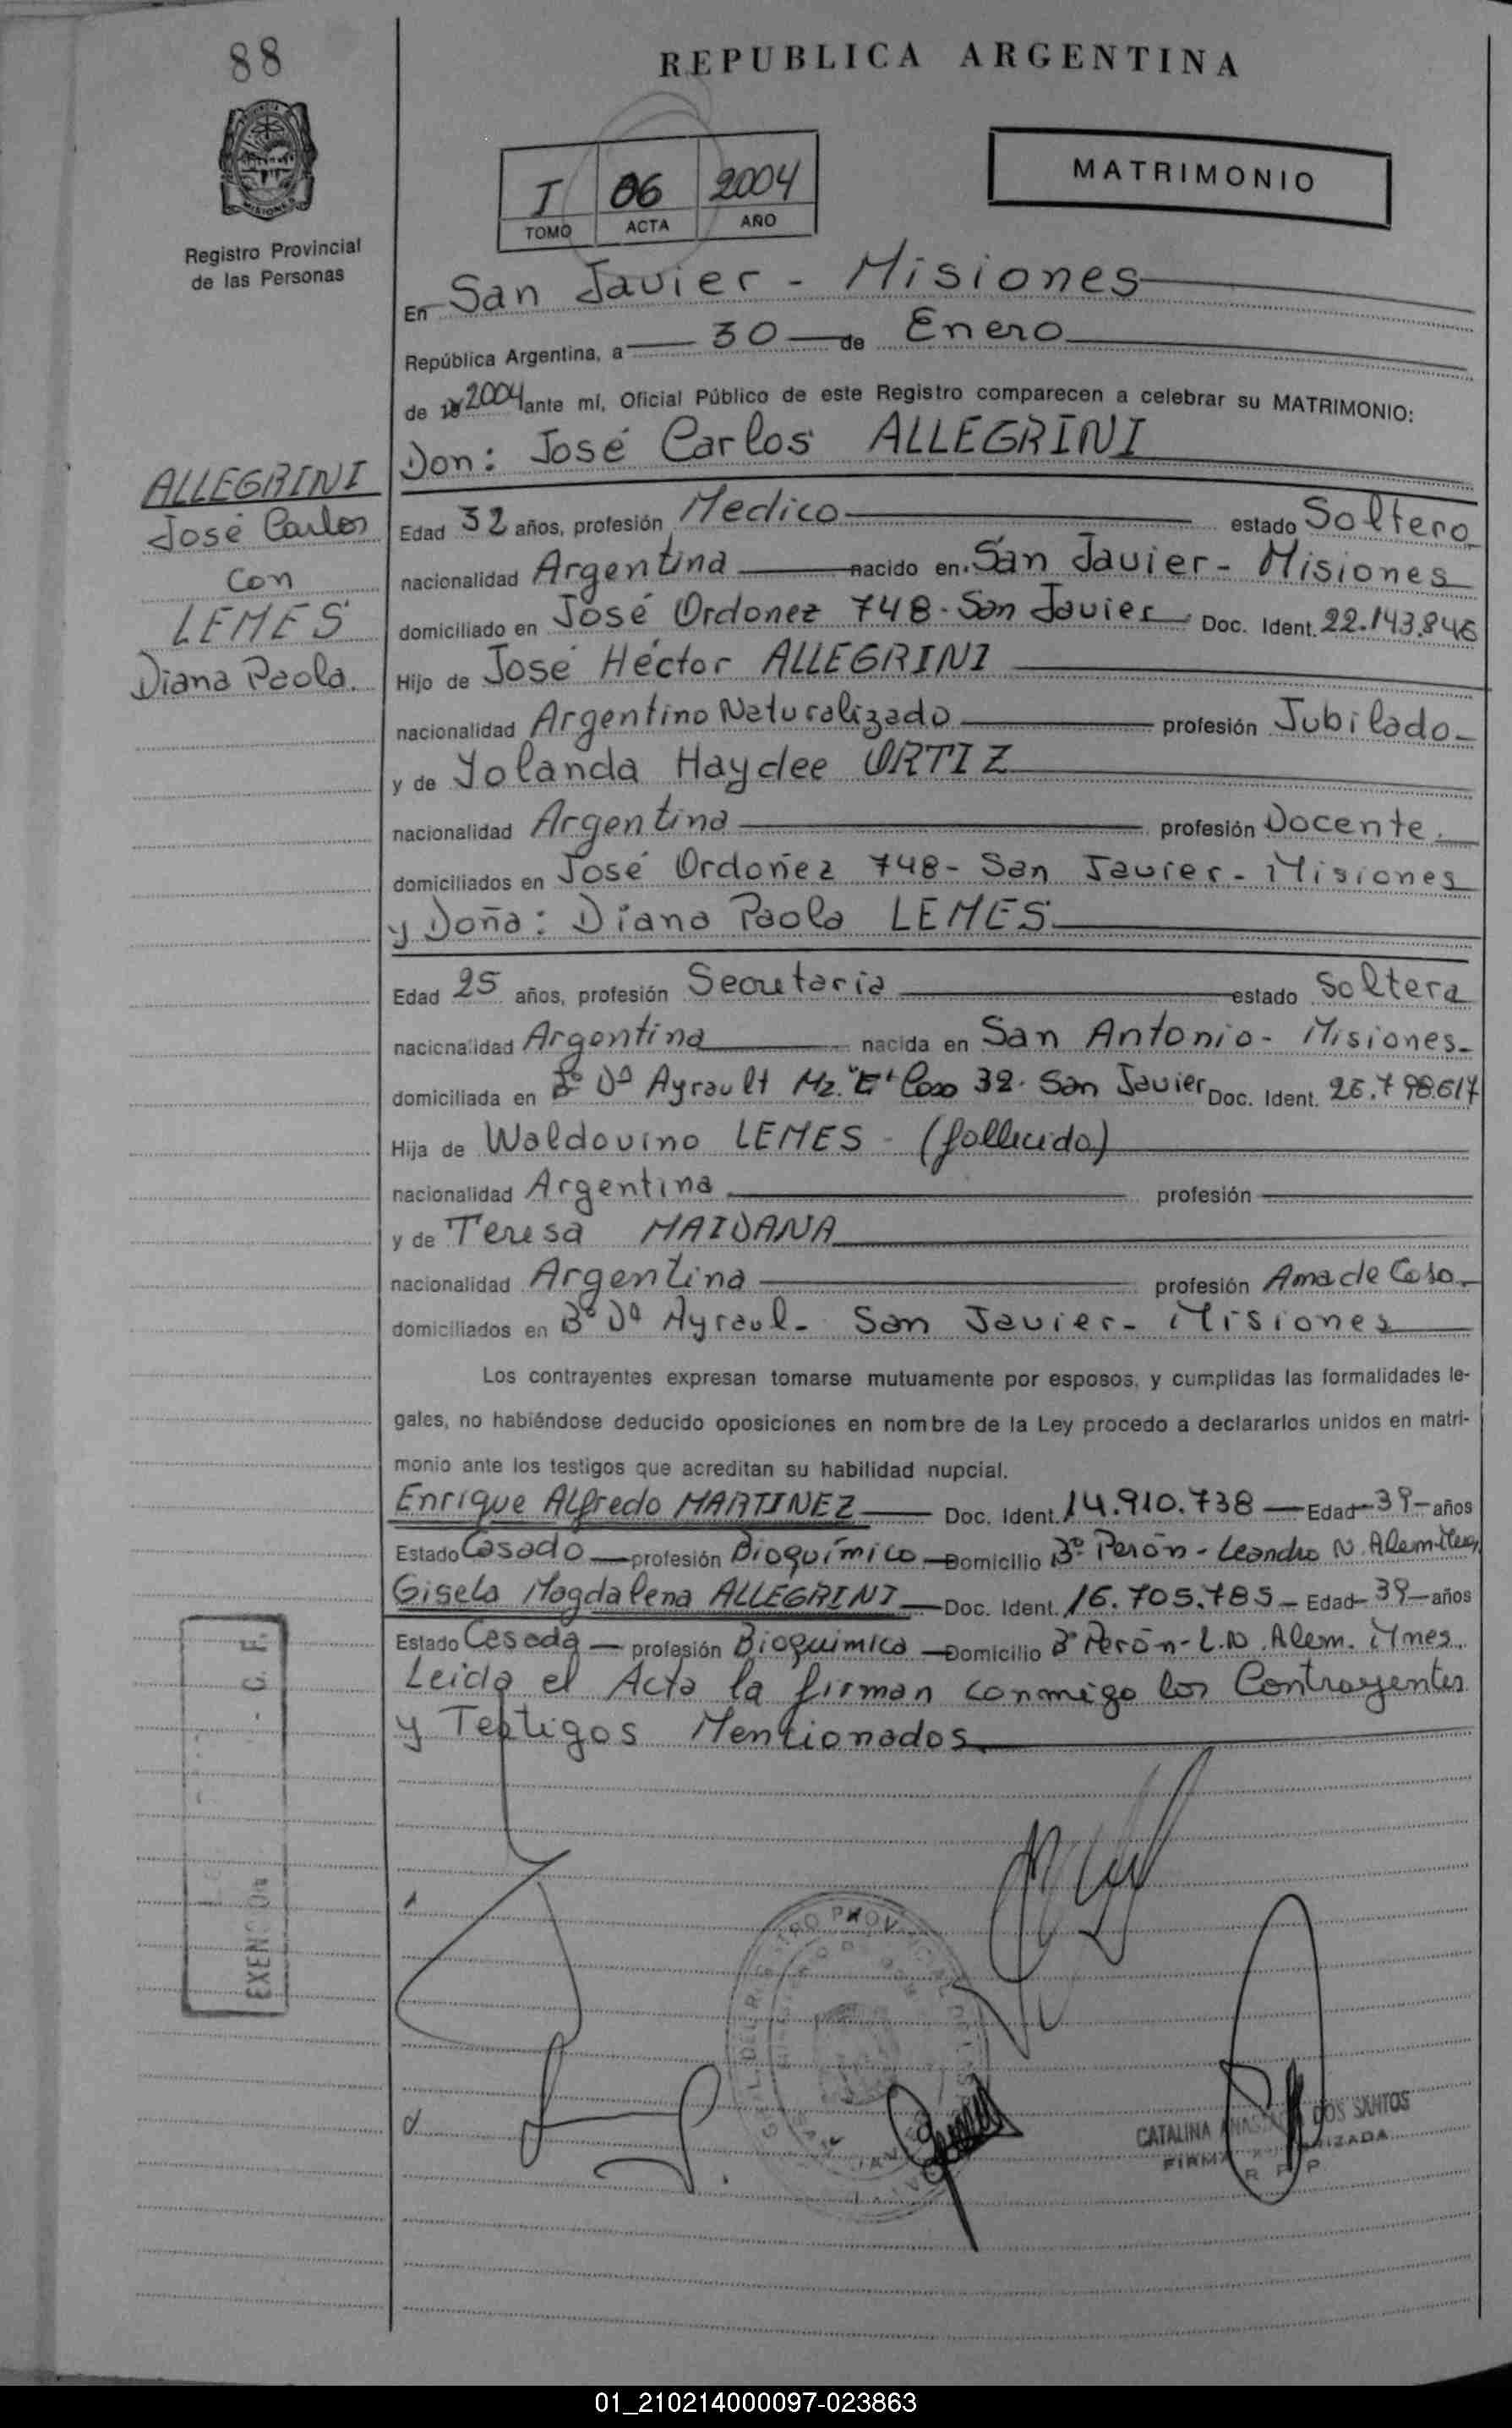 88
REPUBLICA ARGENTINA
MATRIMONIO
I 06 2004
TOMO ACTA AÑO
Registro Provincial
de las Personas
En San Javier - Misiones
República Argentina, a 30 de Enero
de 2004 ante mí, Oficial Público de este Registro comparecen a celebrar su MATRIMONIO:
Don: José Carlos ALLEGRINI
ALLEGRINI
José Carlos
con
LEMES
Diana Paola.
Edad 32 años, profesión Medico estado Soltero
nacionalidad Argentina nacido en San Javier - Misiones
domiciliado en José Ordonez 748 - San Javier Doc. Ident. 22.143.846
Hijo de José Héctor ALLEGRINI
nacionalidad Argentino Naturalizado profesión Jubilado
y de Yolanda Haydee ORTIZ
nacionalidad Argentina profesión Docente
domiciliados en José Ordoñez 748 - San Javier - Misiones
y Doña: Diana Paola LEMES
Edad 25 años, profesión Secretaria estado Soltera
nacionalidad Argentina nacida en San Antonio - Misiones
domiciliada en Bº Dª Ayrault Mz. "E" Casa 32 - San Javier Doc. Ident. 26.798.617
Hija de Waldovino LEMES - (fallecido)
nacionalidad Argentina profesión
y de Teresa MAIDANA
nacionalidad Argentina profesión Ama de Casa
domiciliados en Bº Dª Ayraul - San Javier - Misiones
Los contrayentes expresan tomarse mutuamente por esposos, y cumplidas las formalidades le-
gales, no habiéndose deducido oposiciones en nombre de la Ley procedo a declararlos unidos en matri-
monio ante los testigos que acreditan su habilidad nupcial.
Enrique Alfredo MARTINEZ Doc. Ident. 14.910.738 Edad 39 años
Estado Casado profesión Bioquímico Domicilio Bº Perón - Leandro N. Alem
Gisela Magdalena ALLEGRINI Doc. Ident. 16.705.785 Edad 39 años
Estado Casada profesión Bioquimica Domicilio Bº Perón - L.N. Alem. Mnes.
Leida el Acta la firman conmigo los Contrayentes
y Testigos Mencionados
CATALINA DOS SANTOS
FIRMA
R P P
01_210214000097-023863